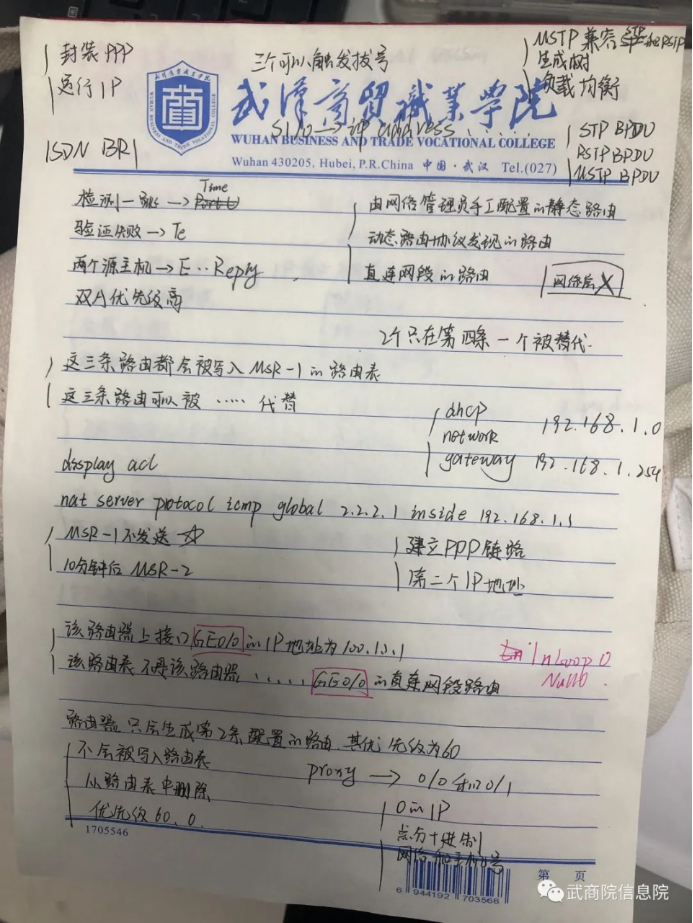 封装 PPP
运行 IP
三个可以触发拔号
MSTP 兼容 STP和RSTP
生成树
负载均衡
武汉商贸职业学院
S1/0 → ip address ......
WUHAN BUSINESS AND TRADE VOCATIONAL COLLEGE
Wuhan 430205, Hubei, P.R.China 中国·武汉 Tel.(027)
ISDN BRI
STP BPDU
RSTP BPDU
MSTP BPDU
Time
验证失败 → Te
两个源主机 → E..Reply
双A优先级高
由网络管理员手工配置的静态路由
动态路由协议发现的路由
直连网段的路由
网络层 X
2个只在第四条 一个被替代.
这三条路由都会被写入 MSR-1 的路由表
这三条路由可以被 ..... 代替
dhcp
network 192.168.1.0
gateway 192.168.1.254
display acl
nat server protocol icmp global 2.2.2.1 inside 192.168.1.1
MSR-1不发送
10分钟后 MSR-2
建立PPP链路
第二个IP地址
该路由器上接口GE0/0的IP地址为100.10.1
该路由表不是该路由器 ..... GE0/0 的直连网段路由
InLoop 0
Null0
路由器只会生成第2条配置的路由, 其优先级为60
不会被写入路由表
从路由表中删除
优先级 60. 0.
proxy → 0/0和0/1
0的IP
点分十进制
网络和主机号
1705546
第 页
6 944192 703566
武商院信息院